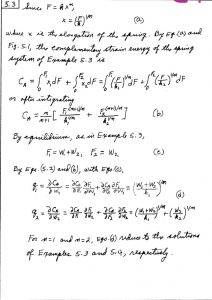 5.3 Since F = kxⁿ,
x = (F/k)^1/n (a)
where x is the elongation of the spring. By Eq.(a) and
Fig. 5.1, the complementary strain energy of the spring
system of Example 5.3 is
C_A = ∫₀^F₁ x dF + ∫₀^F₂ x dF = ∫₀^F₁ (F/k₁)^1/n dF + ∫₀^F₂ (F/k₂)^1/n dF
or after integrating
C_A = n/(n+1) [F₁^(n+1)/n / k₁^1/n + F₂^(n+1)/n / k₂^1/n] (b)
By equilibrium, as in Example 5.3,
F₁ = W₁ + W₂, F₂ = W₂ (c)
By Eqs. (5.2) and (b), with Eqs. (c),
q₁ = ∂C_A/∂W₁ = ∂C_A/∂F₁ ∂F₁/∂W₁ + ∂C_A/∂F₂ ∂F₂/∂W₁ = (W₁+W₂/k₁)^1/n
(d)
q₂ = ∂C_A/∂W₂ = ∂C_A/∂F₁ ∂F₁/∂W₂ + ∂C_A/∂F₂ ∂F₂/∂W₂ = (W₁+W₂/k₁)^1/n + (W₂/k₂)^1/n
For n=1 and n=2, Eqs. (d) reduce to the solutions
of Examples 5.3 and 5.4, respectively.